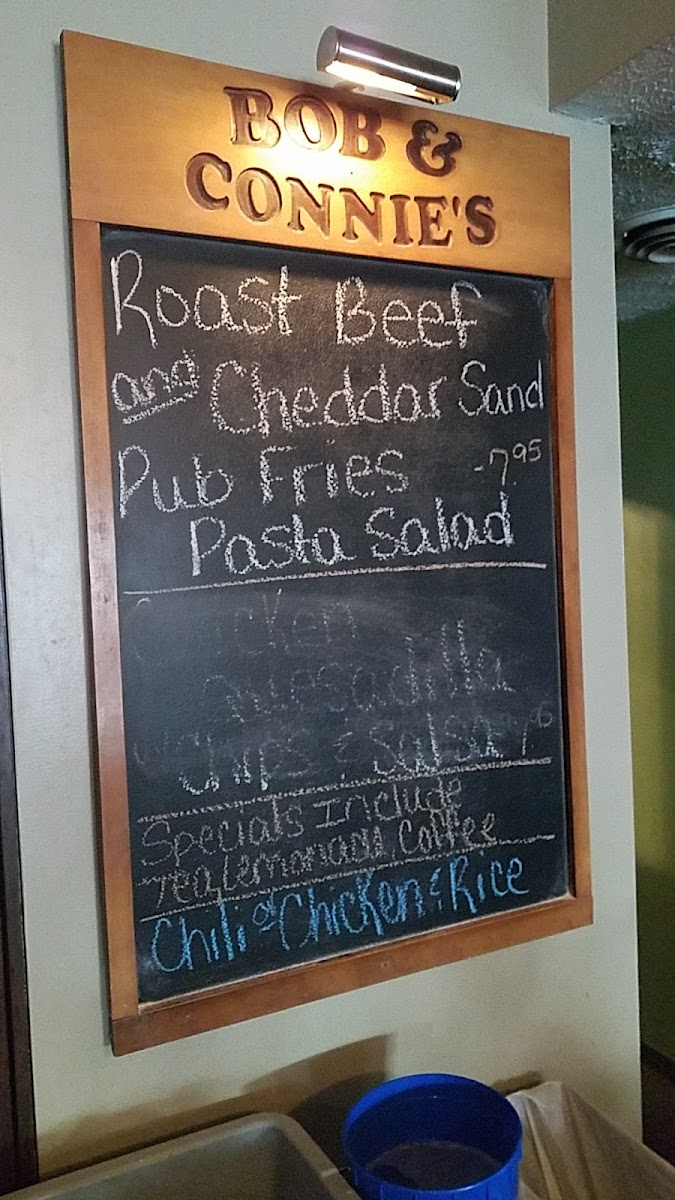 BOB &
CONNIE'S
Roast Beef
and Cheddar Sand
Pub Fries -7.95
Pasta Salad
Chicken
Quesadilla
Chips & Salsa
Specials Include
Tea, Lemonade, Coffee
Chili or Chicken & Rice